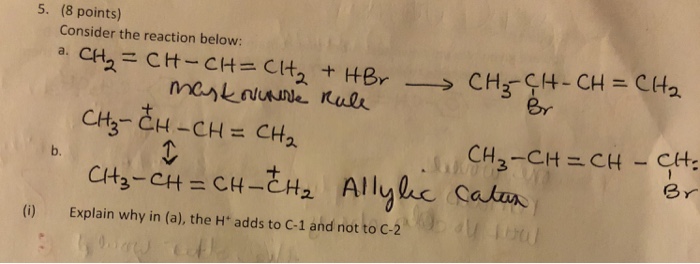 5. (8 points)
Consider the reaction below:
a. CH₂ = CH - CH = CH₂ + HBr ⟶ CH₃-CH-CH = CH₂
Br
Rule
CH₃-C⁺H-CH = CH₂
↕
b. CH₃-CH = CH-C⁺H₂ Allylic CH₃-CH = CH - CH₂
Br
(i) Explain why in (a), the H⁺ adds to C-1 and not to C-2